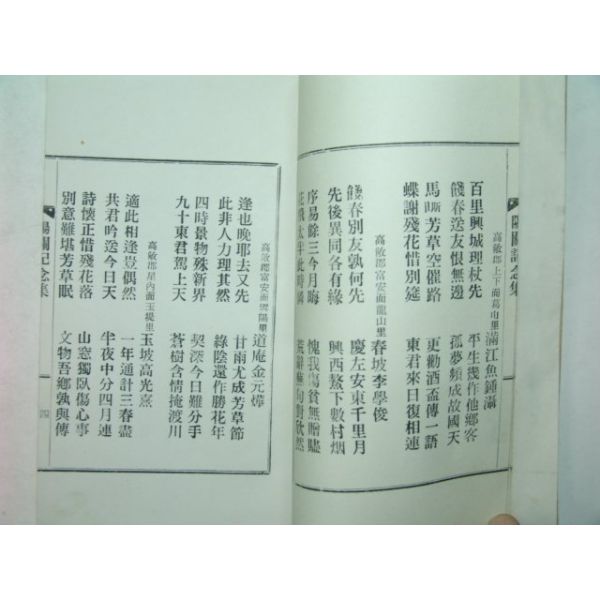 陽關記念集
百里興城理杖先　平生幾作他鄉客
餞春送友恨無邊　孤夢頻成故國天
馬嘶芳草空催路　更勸酒盃傳一語
蝶謝殘花惜別筵　東君來日復相連
高敞郡富安面龍山里　春坡李學俊
春別友孰何先　慶左安東千里月
先後異同各有緣　興西鰲下數村烟
序易餘三今月晦　愧我傷貧無贈贐
高敞郡富安面 陽里　道庵金元燁
逢也晚耶去又先　甘雨尤成芳草節
此非人力理其然　綠陰還作勝花年
四時景物殊新界　契深今日難分手
九十東君駕上天　蒼樹含情掩渡川
高敞郡星內面玉堤里　玉坡高光熹
適此相逢豈偶然　一年通計三春盡
共君吟送今日天　半夜中分四月連
詩懷正惜殘花落　山窓獨臥傷心事
別意難堪芳草眠　文物吾鄉孰與傳
陽關記念集
四